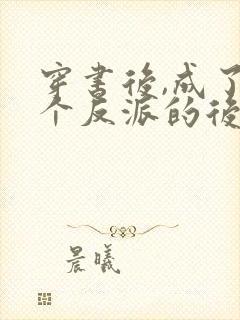 穿書後,成了
个反派的後
晨曦